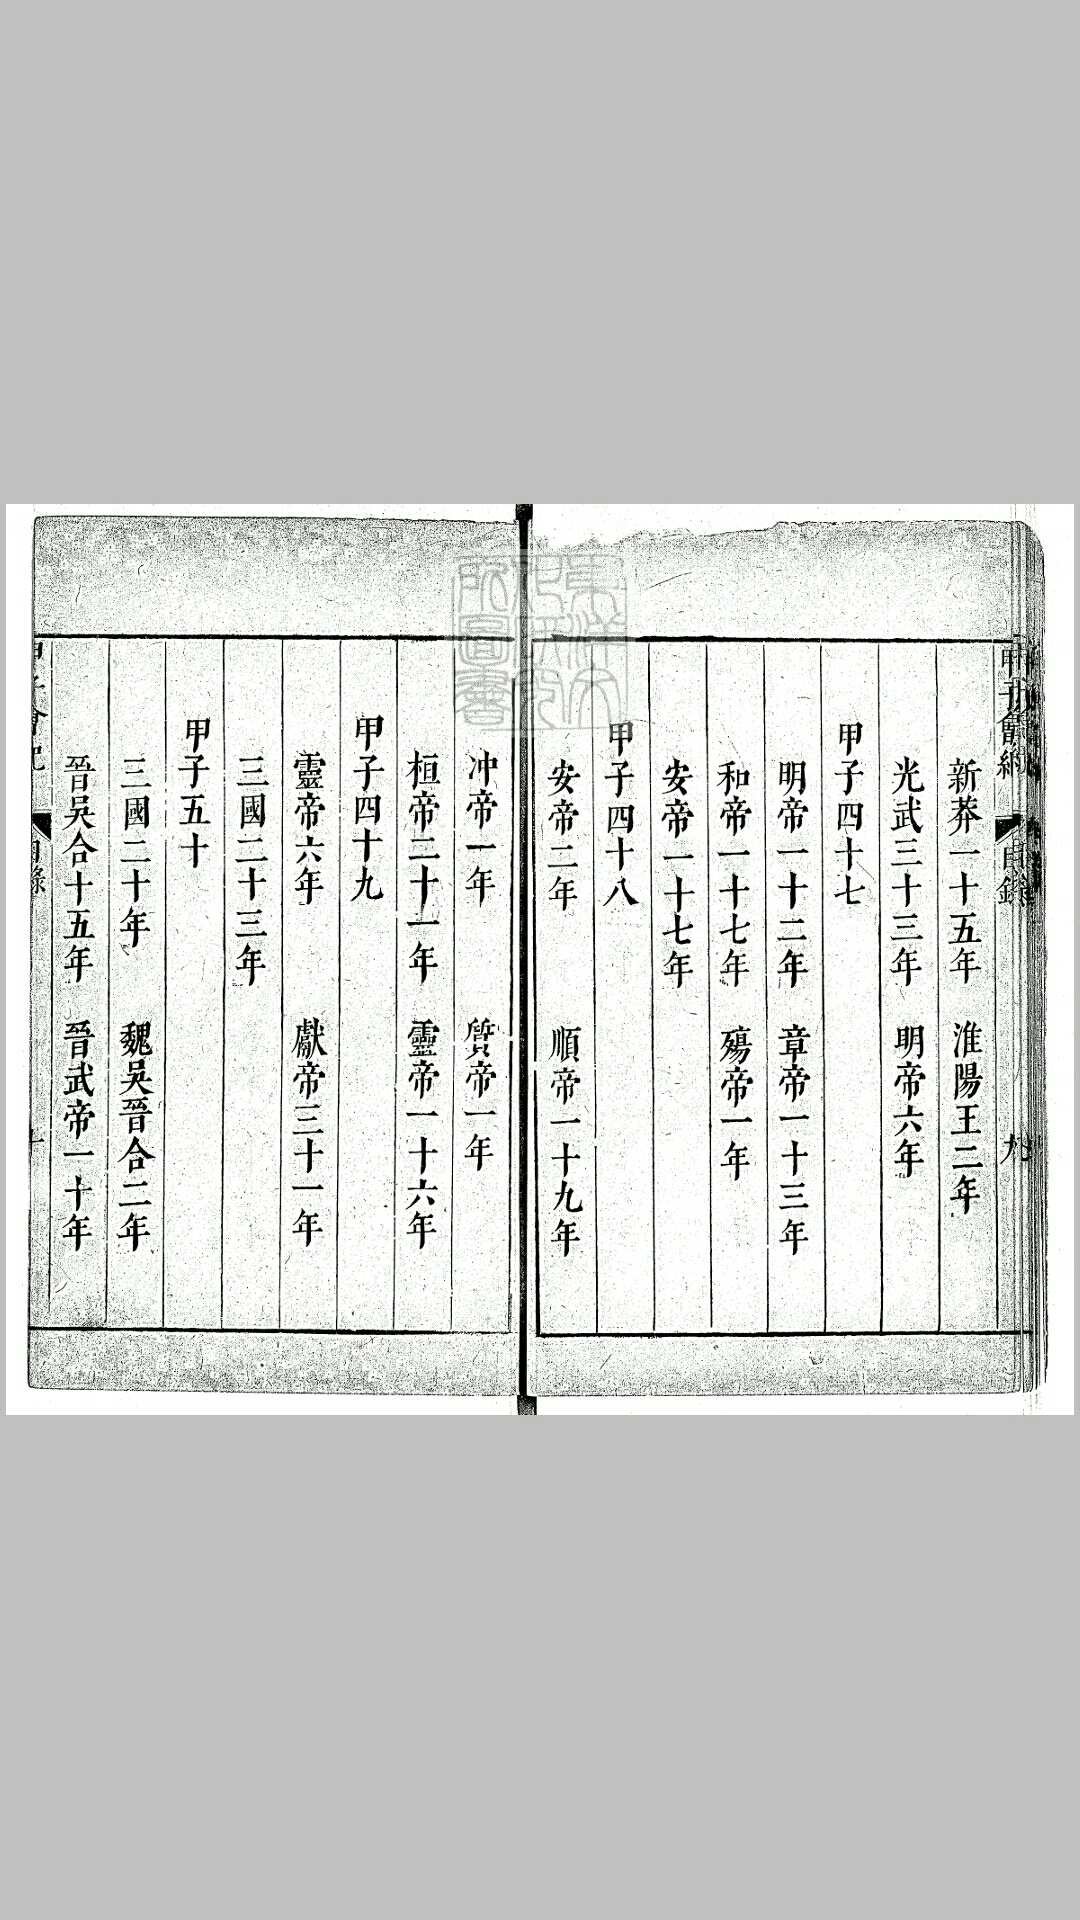 甲子會紀 目錄 九
新莽一十五年 淮陽王二年
光武三十三年 明帝六年
甲子四十七
明帝一十二年 章帝一十三年
和帝一十七年 殤帝一年
安帝一十七年
甲子四十八
安帝二年 順帝一十九年
冲帝一年 質帝一年
桓帝二十一年 靈帝一十六年
甲子四十九
靈帝六年 獻帝三十一年
三國二十三年
甲子五十
三國二十年 魏吳晉合二年
晉吳合十五年 晉武帝一十年
甲子會紀 目錄 十